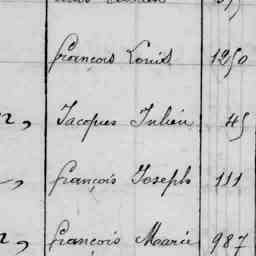 François Louis 1250
Jacques Julien 45
François Joseph 111
François Marie 987